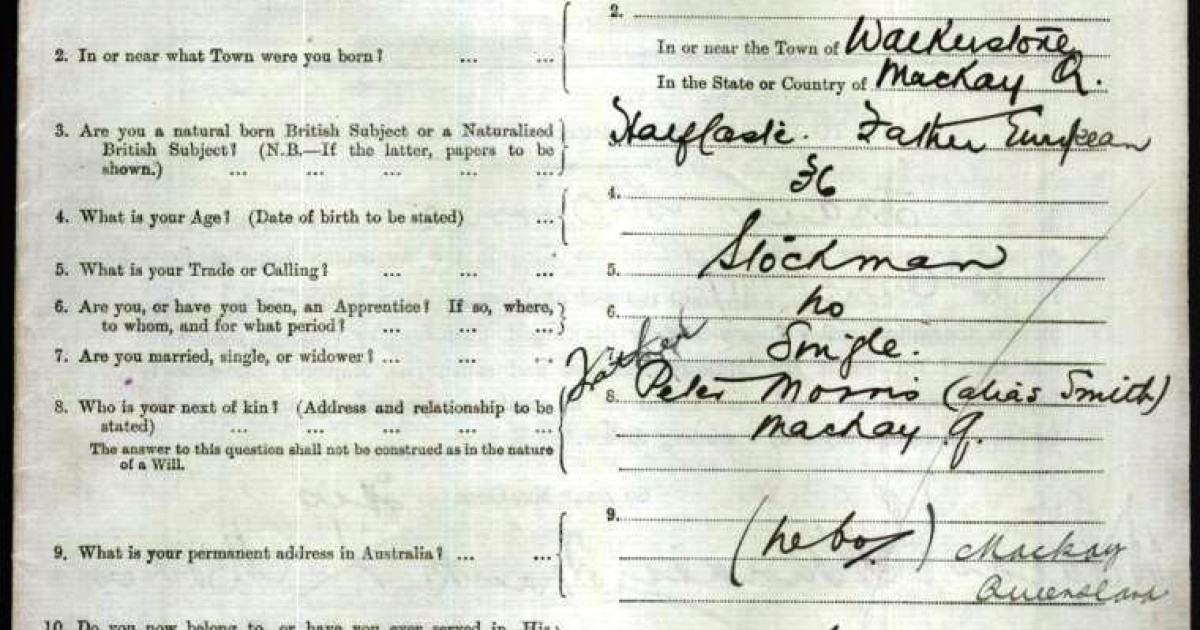 2.
2. In or near what Town were you born? ... ...
In or near the Town of Walkerstone
In the State or Country of Mackay Q.
3. Are you a natural born British Subject or a Naturalized
British Subject? (N.B.—If the latter, papers to be
shown.) ... ... ... ... ...
3. Halfcaste. Father European
4. What is your Age? (Date of birth to be stated) ...
4. 36
5. What is your Trade or Calling? ... ... ...
5. Stockman
6. Are you, or have you been, an Apprentice? If so, where,
to whom, and for what period? ... ... ...
6. no
7. Are you married, single, or widower? ... ... ...
7. Single.
8. Who is your next of kin? (Address and relationship to be
stated) ... ... ... ... ...
The answer to this question shall not be construed as in the nature
of a Will.
Father
8. Peter Morris (alias Smith)
Mackay Q.
9. What is your permanent address in Australia? ... ...
9. (nebo) Mackay
Queensland
10. Do you now belong to, or have you ever served in, His